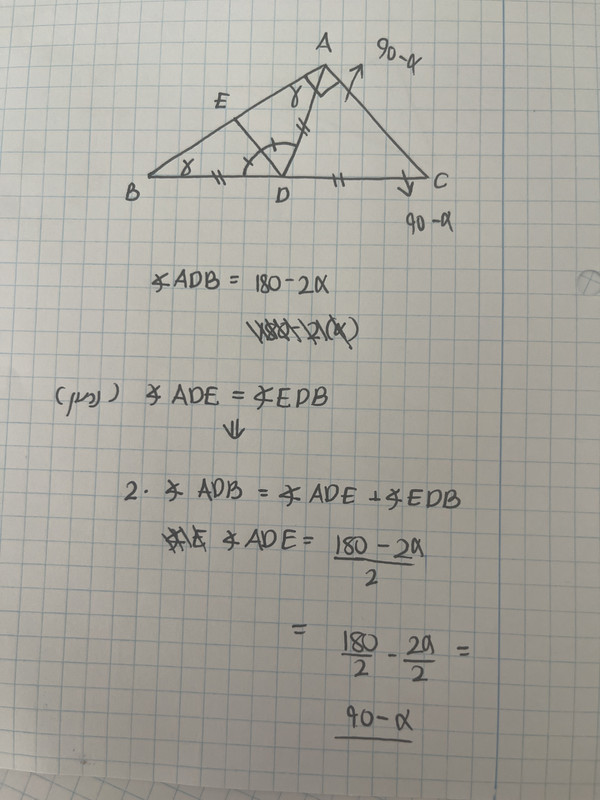 A
90-α
E
γ
γ
B
D
C
90-α
∢ADB = 180-2α
∢ADE = ∢EDB
⇓
2. ∢ADB = ∢ADE + ∢EDB
∢ADE = \frac{180-2α}{2}
= \frac{180}{2} - \frac{2α}{2} =
90-α